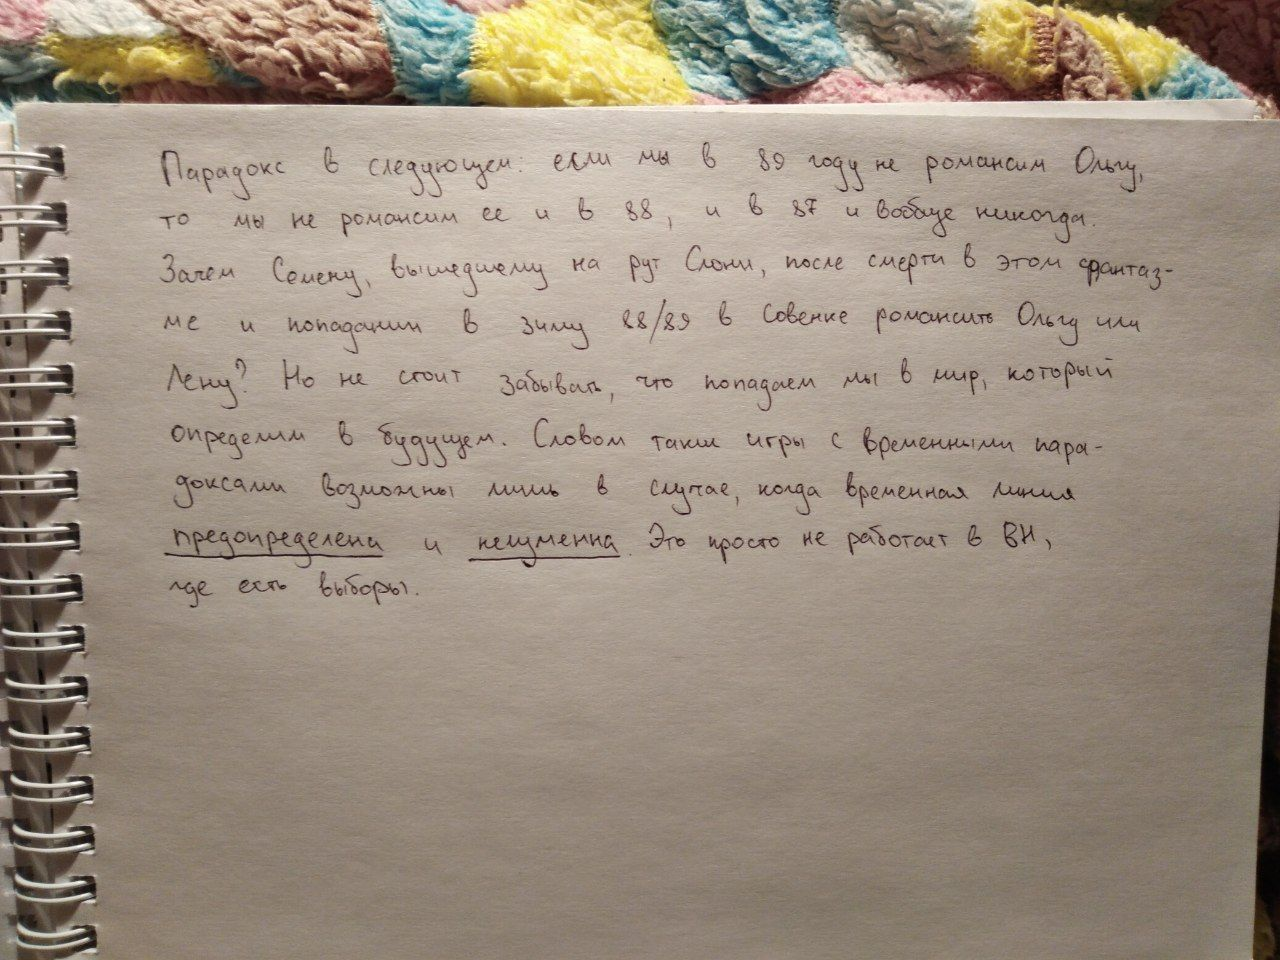 Парадокс в следующем: если мы в 89 году не романсим Ольгу,
то мы не романсим ее и в 88, и в 87 и вообще никогда.
Зачем Семену, вышедшему на рут Слони, после смерти в этом фантаз-
ме и попадании в зиму 88/89 в Совенке романсить Ольгу или
Лену? Но не стоит забывать, что попадаем мы в мир, который
определим в будущем. Словом такие игры с временными пара-
доксами возможны лишь в случае, когда временная линия
предопределена и неизменна. Это просто не работает в ВН,
где есть выборы.